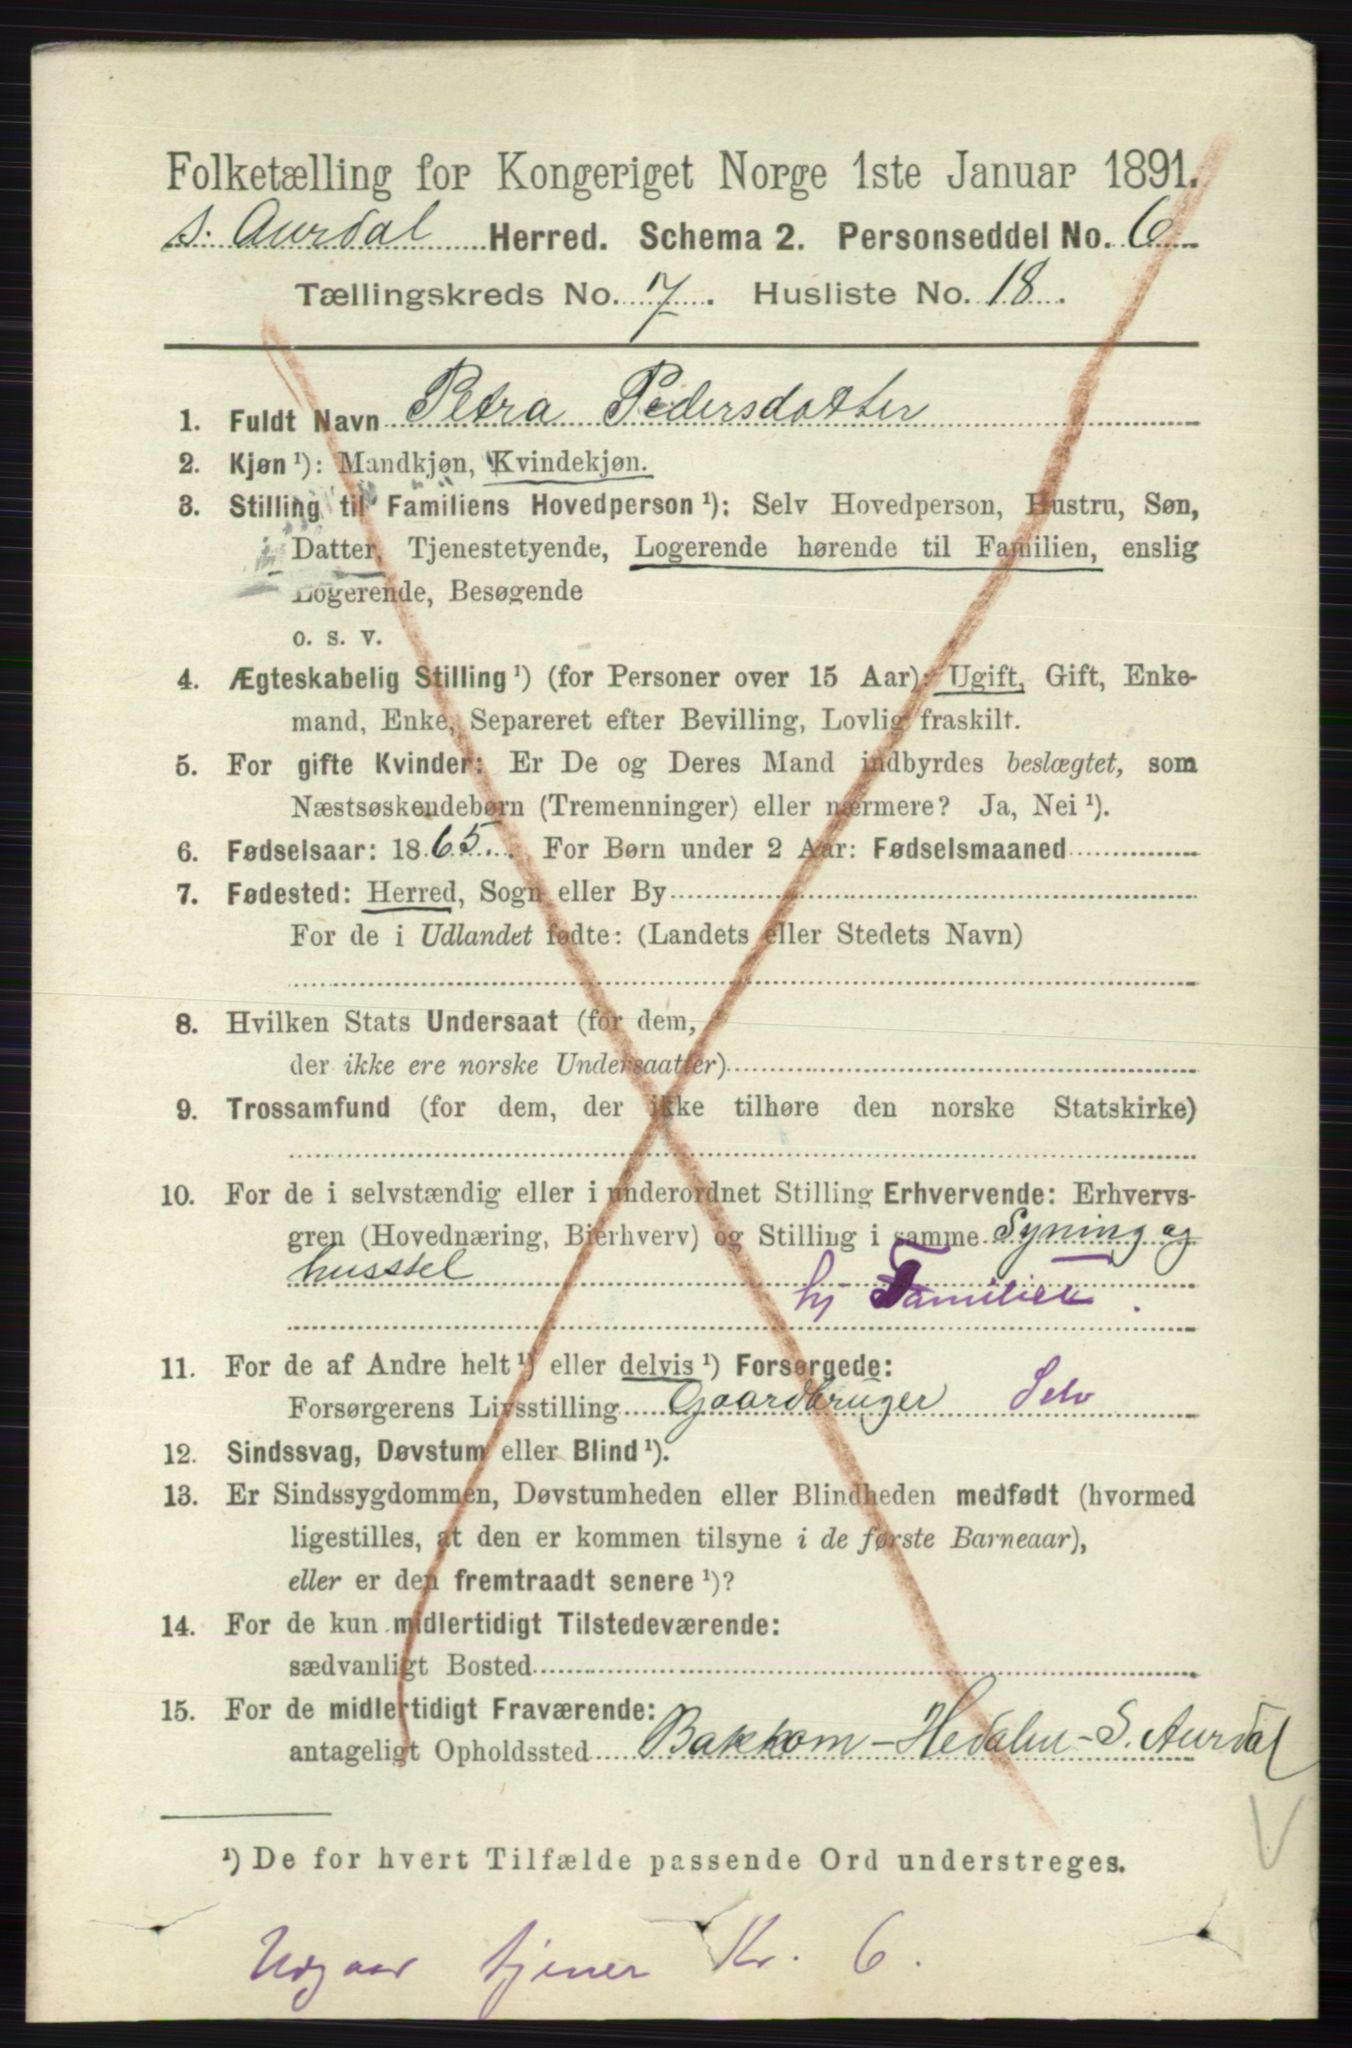 Folketælling for Kongeriget Norge 1ste Januar 1891.
S. Aurdal Herred. Schema 2. Personseddel No. 6
Tællingskreds No. 7. Husliste No. 18.
1. Fuldt Navn Petra Pedersdatter
2. Kjøn ¹): Mandkjøn, Kvindekjøn.
3. Stilling til Familiens Hovedperson ¹): Selv Hovedperson, Hustru, Søn,
Datter, Tjenestetyende, Logerende hørende til Familien, enslig
Logerende, Besøgende
o. s. v.
4. Ægteskabelig Stilling ¹) (for Personer over 15 Aar): Ugift, Gift, Enke-
mand, Enke, Separeret efter Bevilling, Lovlig fraskilt.
5. For gifte Kvinder: Er De og Deres Mand indbyrdes beslægtet, som
Næstsøskendebørn (Tremenninger) eller nærmere? Ja, Nei ¹).
6. Fødselsaar: 1865. For Børn under 2 Aar: Fødselsmaaned
7. Fødested: Herred, Sogn eller By
For de i Udlandet fødte: (Landets eller Stedets Navn)
8. Hvilken Stats Undersaat (for dem,
der ikke ere norske Undersaatter)
9. Trossamfund (for dem, der ikke tilhøre den norske Statskirke)
10. For de i selvstændig eller i underordnet Stilling Erhvervende: Erhvervs-
gren (Hovednæring, Bierhverv) og Stilling i samme Syning og
husstel
hj Familien.
11. For de af Andre helt ¹) eller delvis ¹) Forsørgede:
Forsørgerens Livsstilling Gaardbruger Selv
12. Sindssvag, Døvstum eller Blind ¹).
13. Er Sindssygdommen, Døvstumheden eller Blindheden medfødt (hvormed
ligestilles, at den er kommen tilsyne i de første Barneaar),
eller er den fremtraadt senere ¹)?
14. For de kun midlertidigt Tilstedeværende:
sædvanligt Bosted
15. For de midlertidigt Fraværende:
antageligt Opholdssted Bakkom - Hedalen - S. Aurdal
¹) De for hvert Tilfælde passende Ord understreges.
Udgaar tjener Kr. 6.